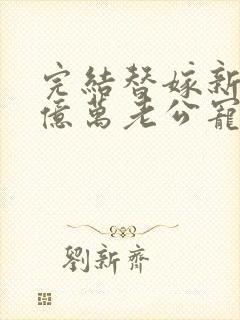 完結替嫁新
億萬老公寵
劉新齊